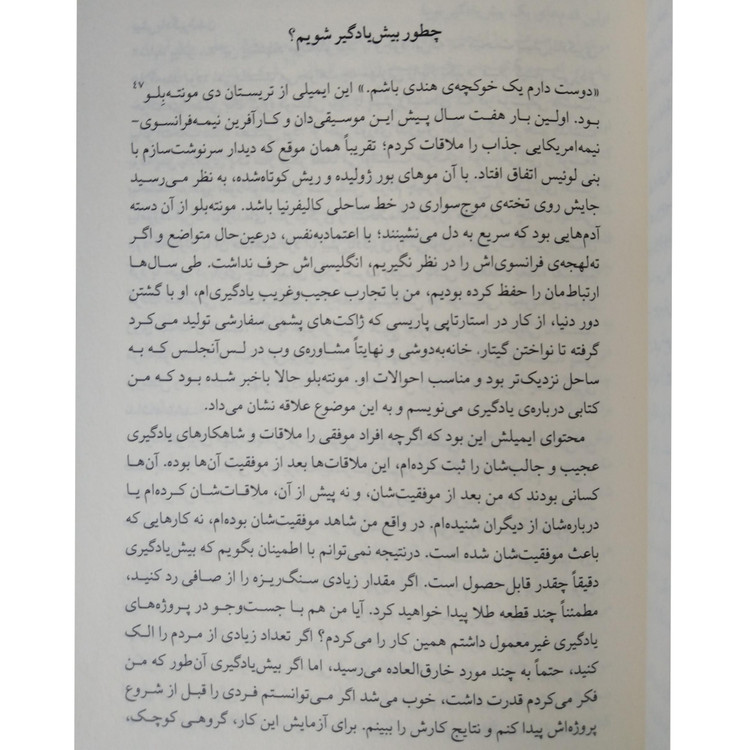 چطور بیش‌یادگیر شویم؟
«دوست دارم یک خوکچه‌ی هندی باشم.» این ایمیلی از تریستان دی مونته‌بِلـو۴۷
بود. اولین بار هفت سال پیش این موسیقی‌دان و کارآفرین نیمه‌فرانسوی-
نیمه‌امریکایی جذاب را ملاقات کردم؛ تقریباً همان موقع که دیدار سرنوشت‌سازم با
بنی لوئیس اتفاق افتاد. با آن موهای بور ژولیده و ریش کوتاه‌شده، به نظر می‌رسید
جایش روی تخته‌ی موج‌سواری در خط ساحلی کالیفرنیا باشد. مونته‌بلو از آن دسته
آدم‌هایی بود که سریع به دل می‌نشینند؛ با اعتمادبه‌نفس، درعین‌حال متواضع و اگر
ته‌لهجه‌ی فرانسوی‌اش را در نظر نگیریم، انگلیسی‌اش حرف نداشت. طی سال‌ها
ارتباط‌مان را حفظ کرده بودیم، من با تجارب عجیب‌وغریب یادگیری‌ام، او با گشتن
دور دنیا، از کار در استارتاپی پاریسی که ژاکت‌های پشمی سفارشی تولید می‌کرد
گرفته تا نواختن گیتار. خانه‌به‌دوشی و نهایتاً مشاوره‌ی وب در لس‌آنجلس که به
ساحل نزدیک‌تر بود و مناسب احوالات او. مونته‌بلو حالا باخبر شده بود که من
کتابی درباره‌ی یادگیری می‌نویسم و به این موضوع علاقه نشان می‌داد.
محتوای ایمیلش این بود که اگرچه افراد موفقی را ملاقات و شاهکارهای یادگیری
عجیب و جالب‌شان را ثبت کرده‌ام، این ملاقات‌ها بعد از موفقیت آن‌ها بوده. آن‌ها
کسانی بودند که من بعد از موفقیت‌شان، و نه پیش از آن، ملاقات‌شان کرده‌ام یا
درباره‌شان از دیگران شنیده‌ام. در واقع من شاهد موفقیت‌شان بوده‌ام، نه کارهایی که
باعث موفقیت‌شان شده است. درنتیجه نمی‌توانم با اطمینان بگویم که بیش‌یادگیری
دقیقاً چقدر قابل‌حصول است. اگر مقدار زیادی سنگ‌ریزه را از صافی رد کنید،
مطمئناً چند قطعه طلا پیدا خواهید کرد. آیا من هم با جست‌وجو در پروژه‌های
یادگیری غیرمعمول داشتم همین کار را می‌کردم؟ اگر تعداد زیادی از مردم را الک
کنید، حتماً به چند مورد خارق‌العاده می‌رسید، اما اگر بیش‌یادگیری آن‌طور که من
فکر می‌کردم قدرت داشت، خوب می‌شد اگر می‌توانستم فردی را قبل از شروع
پروژه‌اش پیدا کنم و نتایج کارش را ببینم. برای آزمایش این کار، گروهی کوچک،